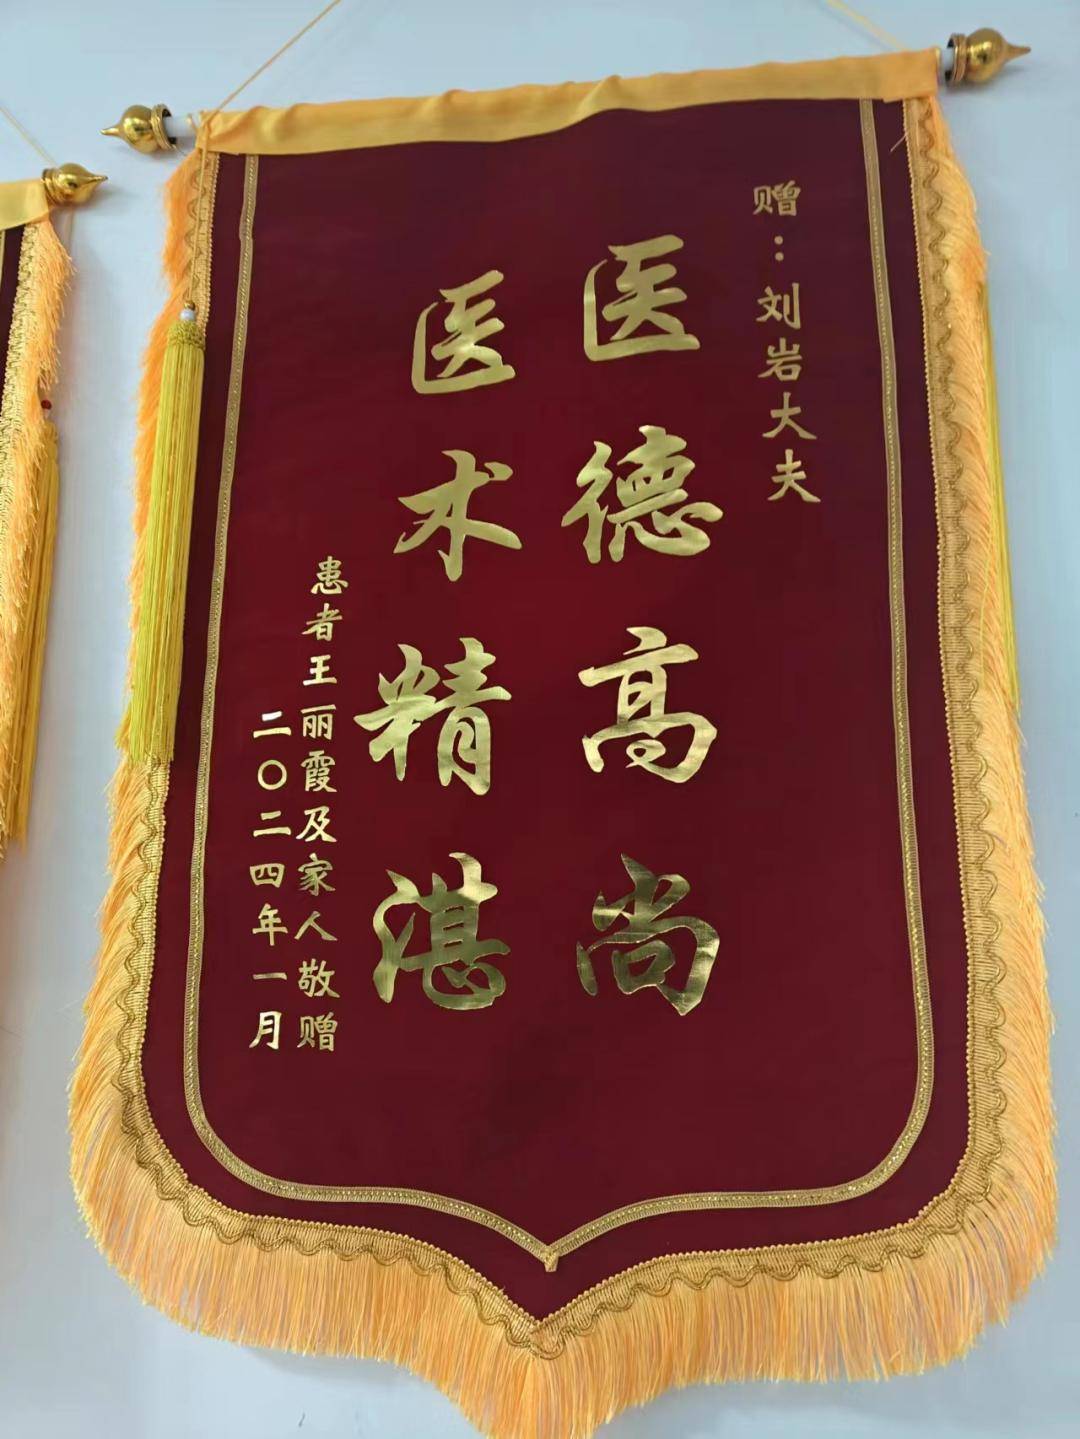 赠：刘岩大夫
医德高尚
医术精湛
患者王丽霞及家人敬赠
二〇二四年一月